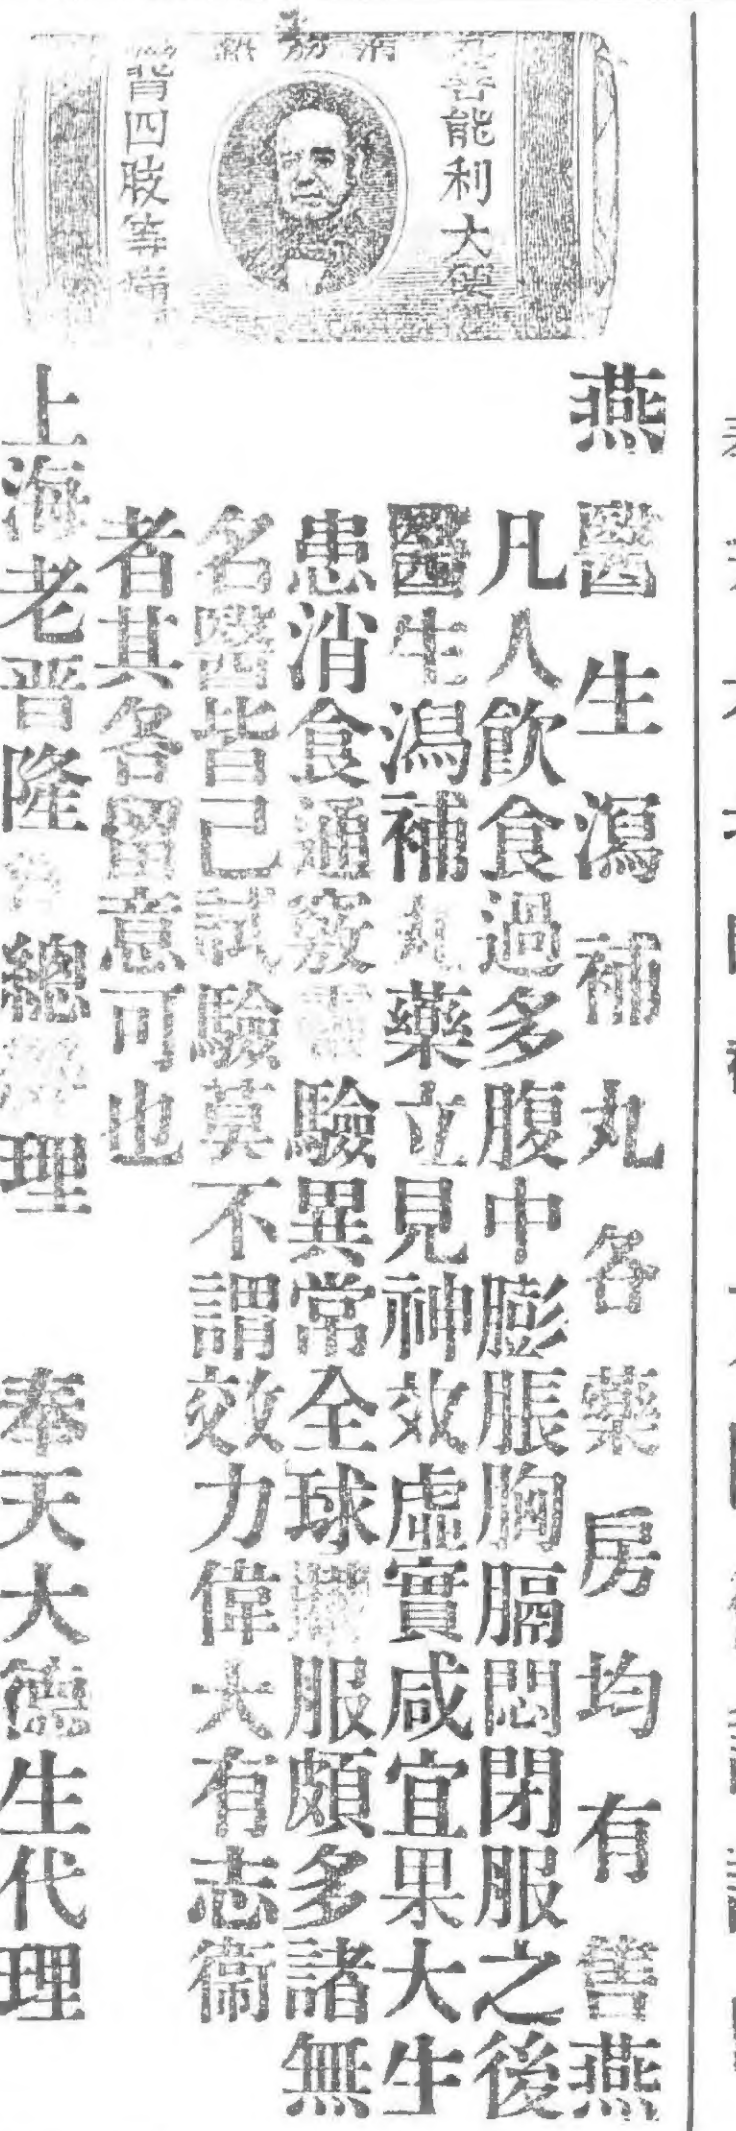 善能利大便
背四肢等
燕醫生瀉補丸各藥房均有售燕
凡人飲食過多腹中膨脹胸膈悶閉服之後
醫生瀉補丸藥立見神效虛實咸宜果大生
患消食通竅靈驗異常全球購服頗多諸無
名醫皆已試驗莫不謂效力偉大有志衞
者其各留意可也
上海老晋隆總經理 奉天大德生代理